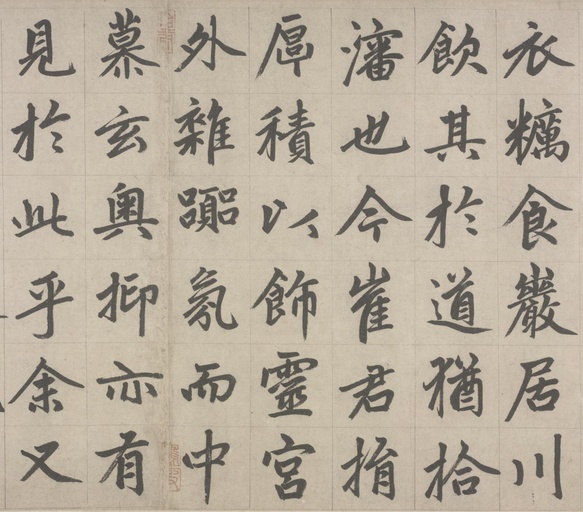 衣糲食巖居川
飲其於道猶拾
瀋也今崔君捐
厚積以飾靈宮
外雜囂氛而中
慕玄奧抑亦有
見於此乎余又